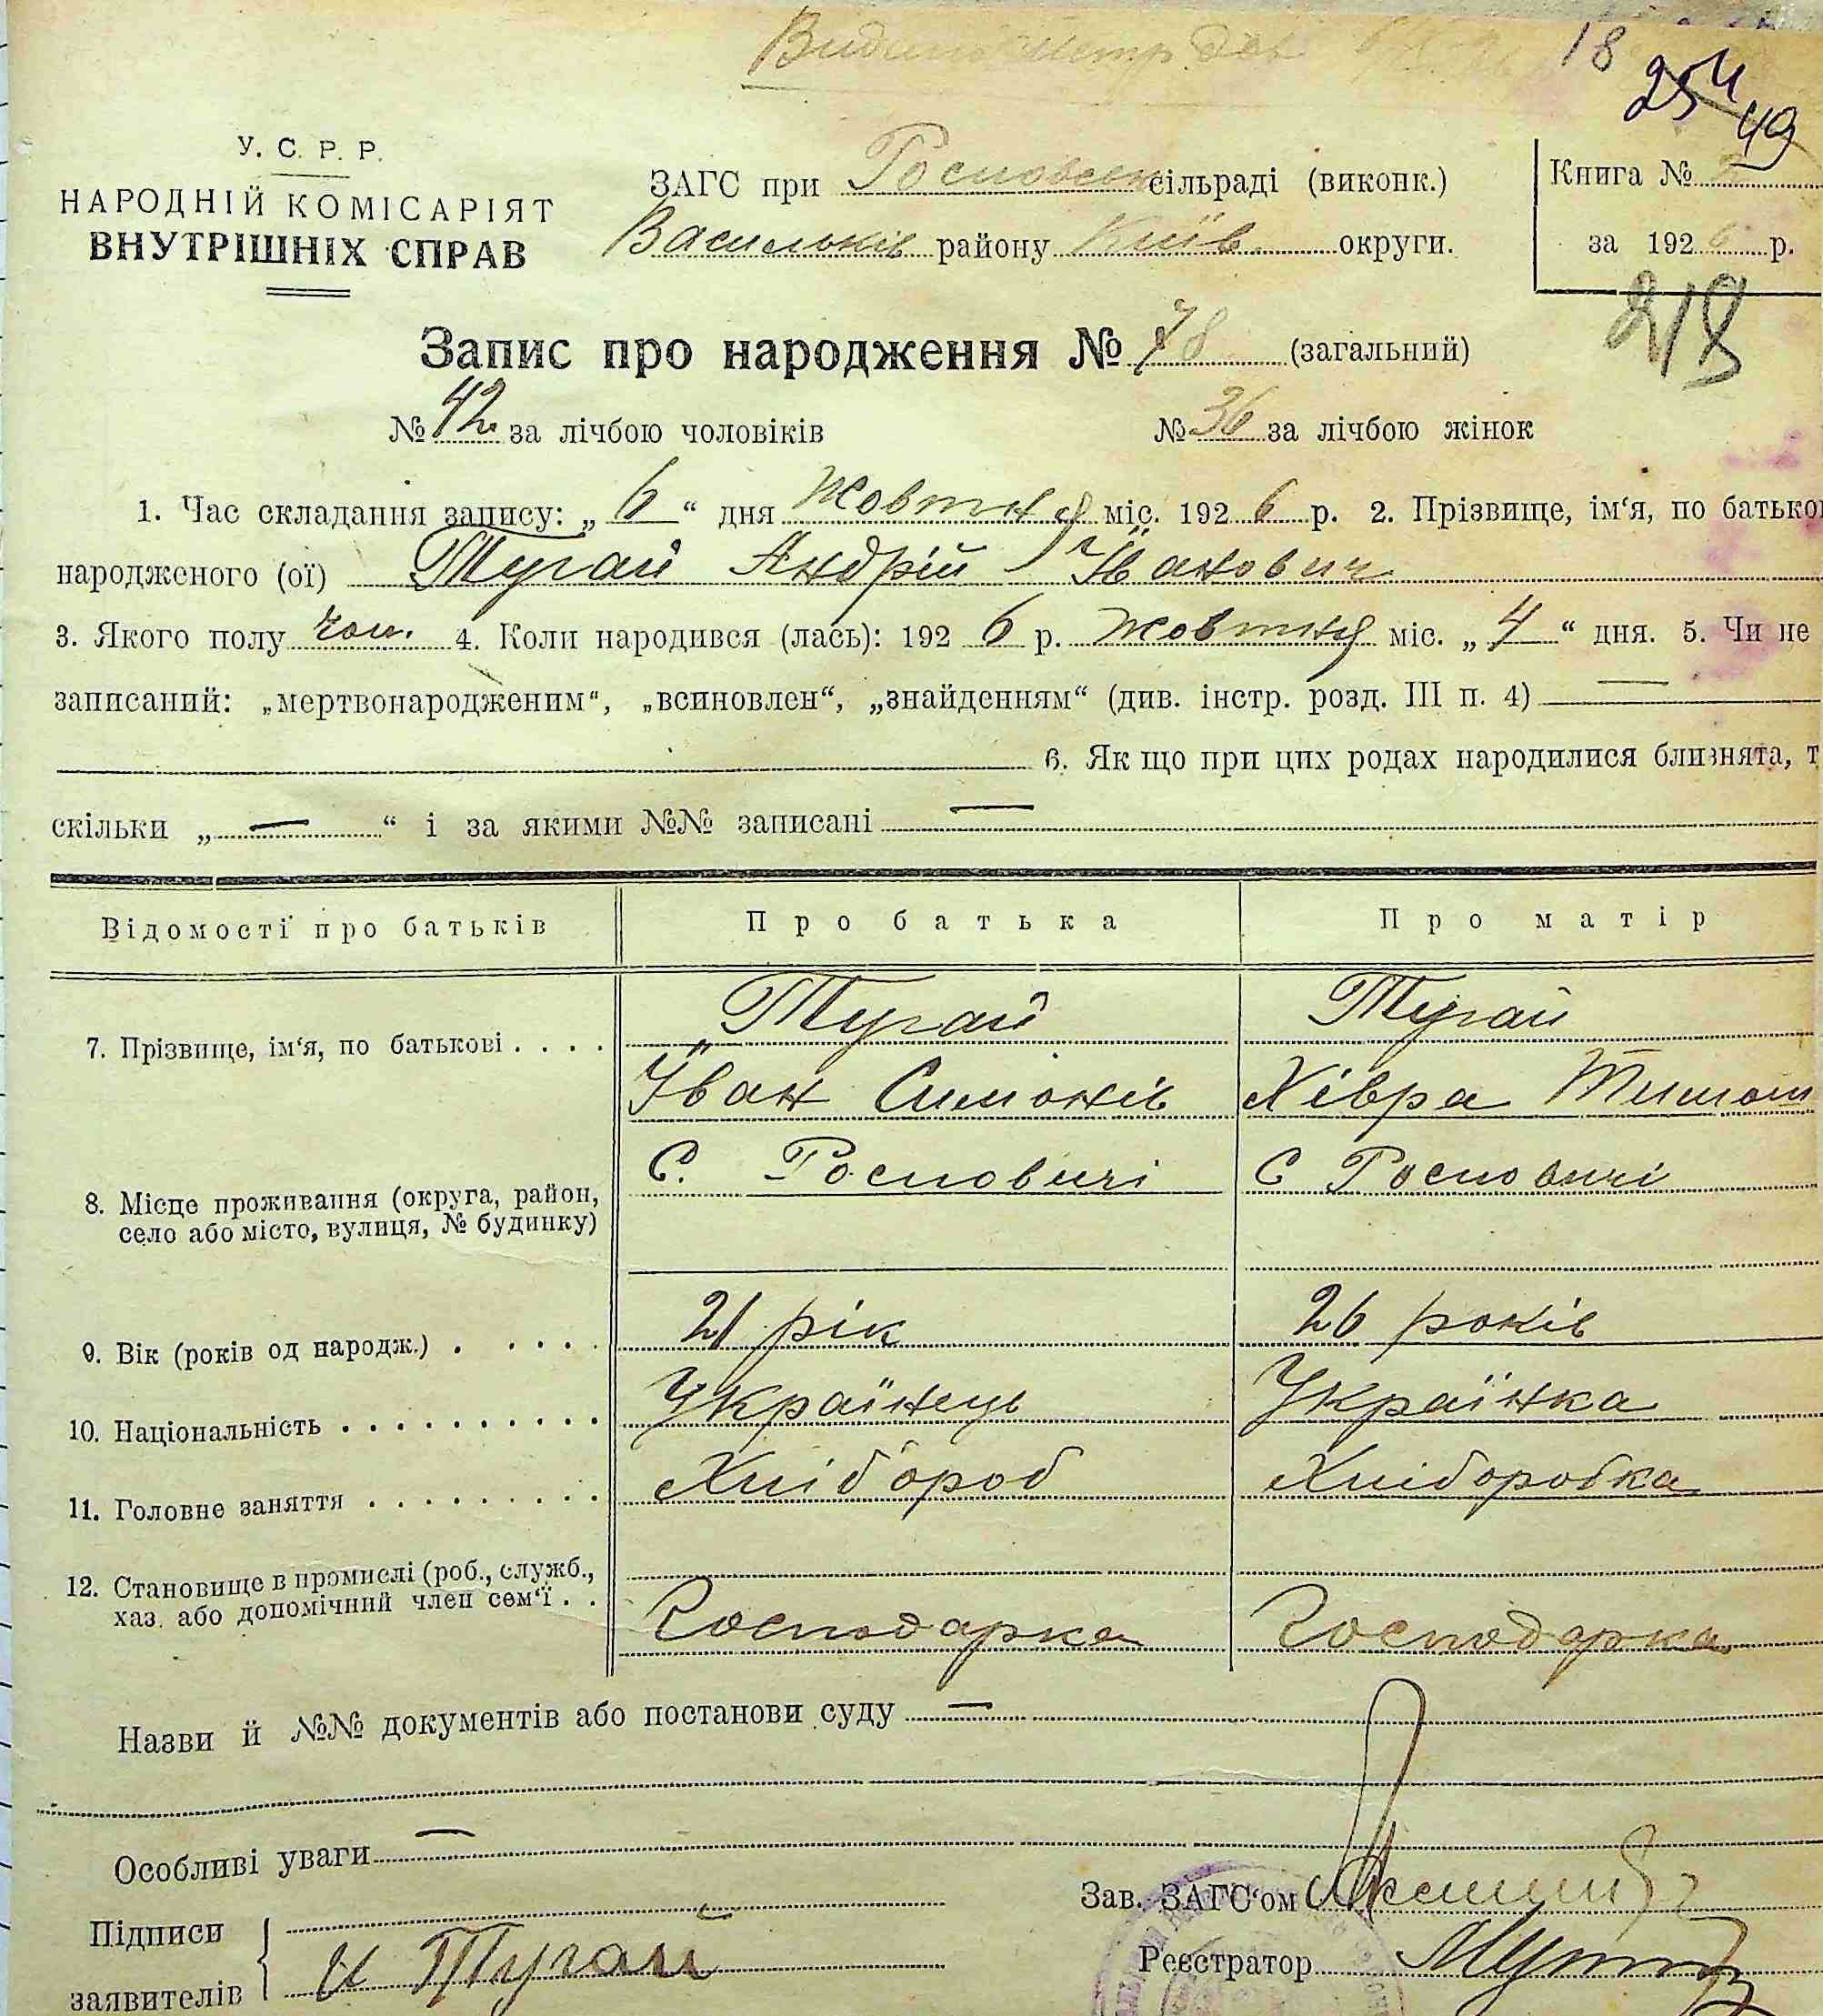 Видано метр.
18
254
49
У. С. Р. Р.
НАРОДНІЙ КОМІСАРІЯТ
ВНУТРІШНІХ СПРАВ
ЗАГС при Росновськ сільраді (виконк.)
Васильків району Київ округи.
Книга №
за 1926 р.
218
Запис про народження № 78 (загальний)
№ 42 за лічбою чоловіків № 36 за лічбою жінок
1. Час складання запису: „ 6 “ дня Жовтня міс. 192 6 р. 2. Прізвище, ім‘я, по батько
народженого (ої) Тугай Андрій Іванович
3. Якого полу чол. 4. Коли народився (лась): 192 6 р. жовтня міс. „ 4 “ дня. 5. Чи не
записаний: „мертвонародженим“, „всиновлен“, „знайденням“ (див. інстр. розд. III п. 4) —
6. Як що при цих родах народилися близнята, т
скільки „ — “ і за якими №№ записані —
Відомості про батьків Про батька Про матір
7. Прізвище, ім‘я, по батькові . . . . Тугай Тугай
Іван Симонів Хівра Тимош
8. Місце проживання (округа, район, С. Росновичі С Росновичі
село або місто, вулиця, № будинку)
9. Вік (років од народж.) . . . . . 21 рік 26 років
10. Національність . . . . . . . . . . Українець Українка
11. Головне заняття . . . . . . . . . . Хлібороб Хліборобка
12. Становище в промислі (роб., служб.,
хаз. або допомічний член сем‘ї . . Господарка Господарка
Назви й №№ документів або постанови суду —
Особливі уваги —
Зав. ЗАГС‘ом
Підписи
заявителів И Тугай
Реєстратор